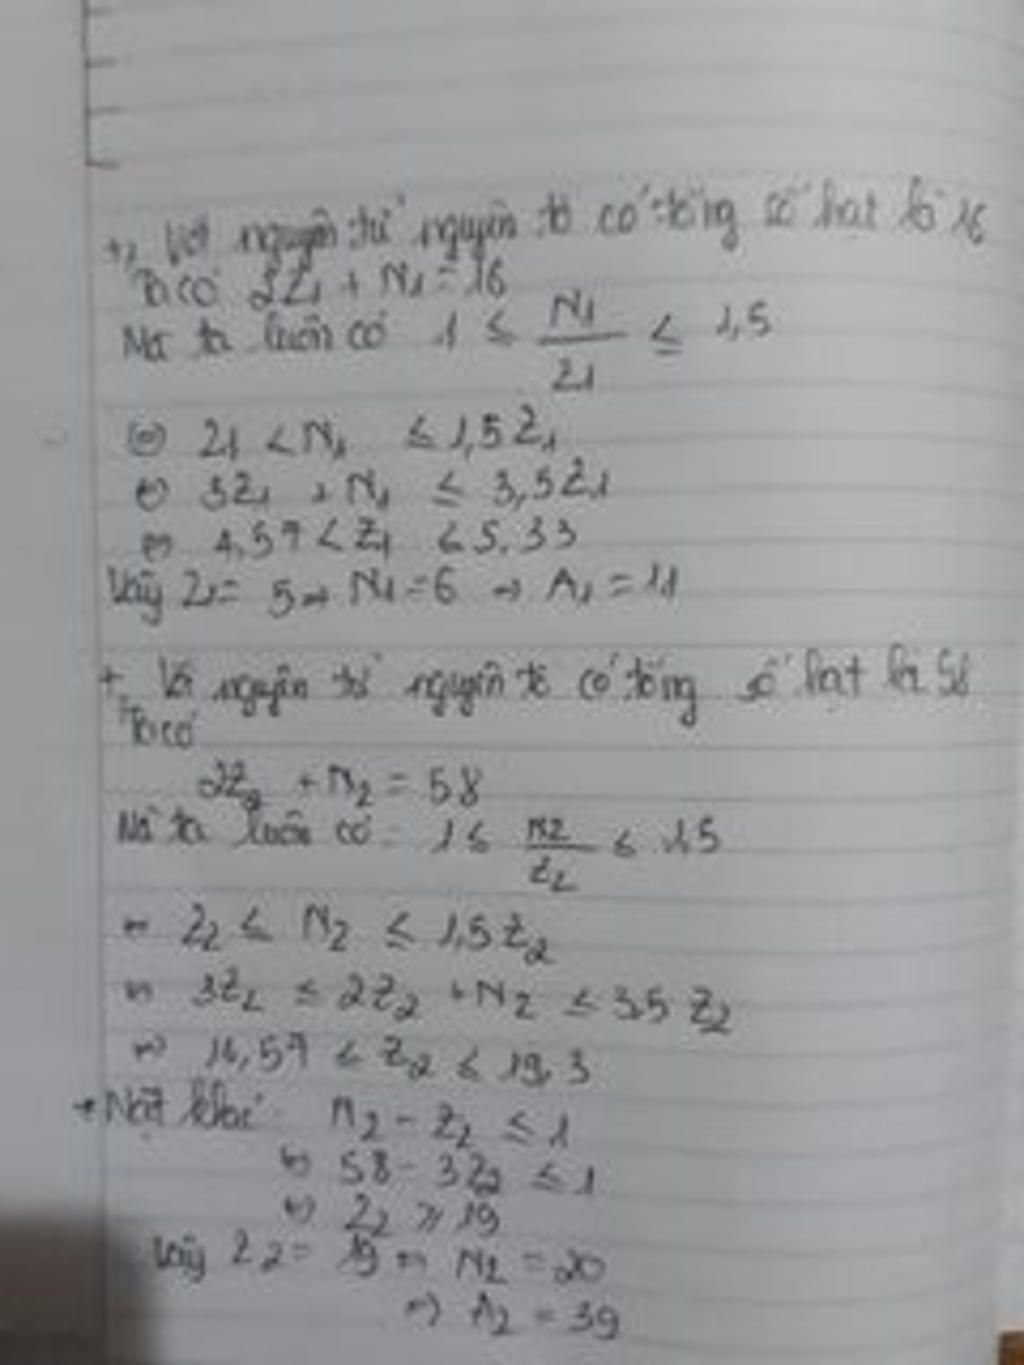 +, Với nguyên tử nguyên tố có tổng số hạt là 16
Ta có 2Z₁ + N₁ = 16
Mà ta luôn có 1 ≤ N₁/Z₁ ≤ 1,5
⇔ Z₁ < N₁ ≤ 1,5Z₁
⇔ 3Z₁ + N₁ ≤ 3,5Z₁
⇔ 4,57 < Z₁ < 5,33
Vậy Z₁ = 5 → N₁ = 6 → A₁ = 11
+, Với nguyên tử nguyên tố có tổng số hạt là 58
Ta có
2Z₂ + N₂ = 58
Mà ta luôn có 1 ≤ N₂/Z₂ ≤ 1,5
⇔ Z₂ ≤ N₂ ≤ 1,5Z₂
⇔ 3Z₂ ≤ 2Z₂ + N₂ ≤ 3,5 Z₂
⇔ 16,57 ≤ Z₂ ≤ 19,3
+ Mặt khác N₂ - Z₂ ≤ 1
⇔ 58 - 3Z₂ ≤ 1
⇔ Z₂ ≥ 19
Vậy Z₂ = 19 ⇒ N₂ = 20
⇒ A₂ = 39